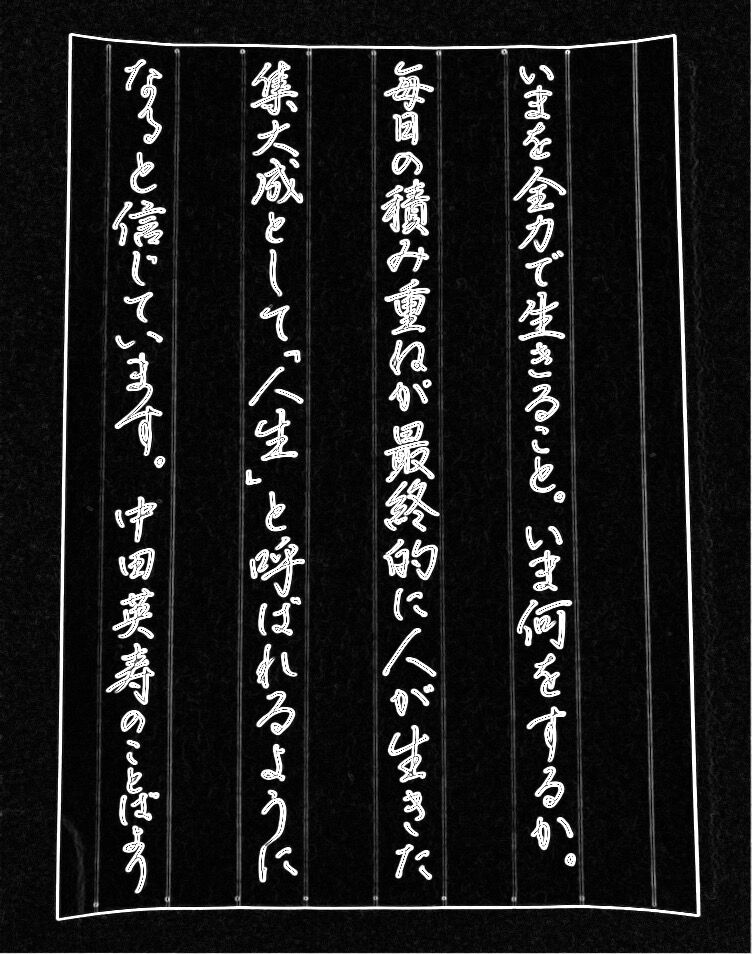 いまを全力で生きること。いま何をするか。
毎日の積み重ねが最終的に人が生きた
集大成として「人生」と呼ばれるように
なると信じています。 中田英寿のことばより